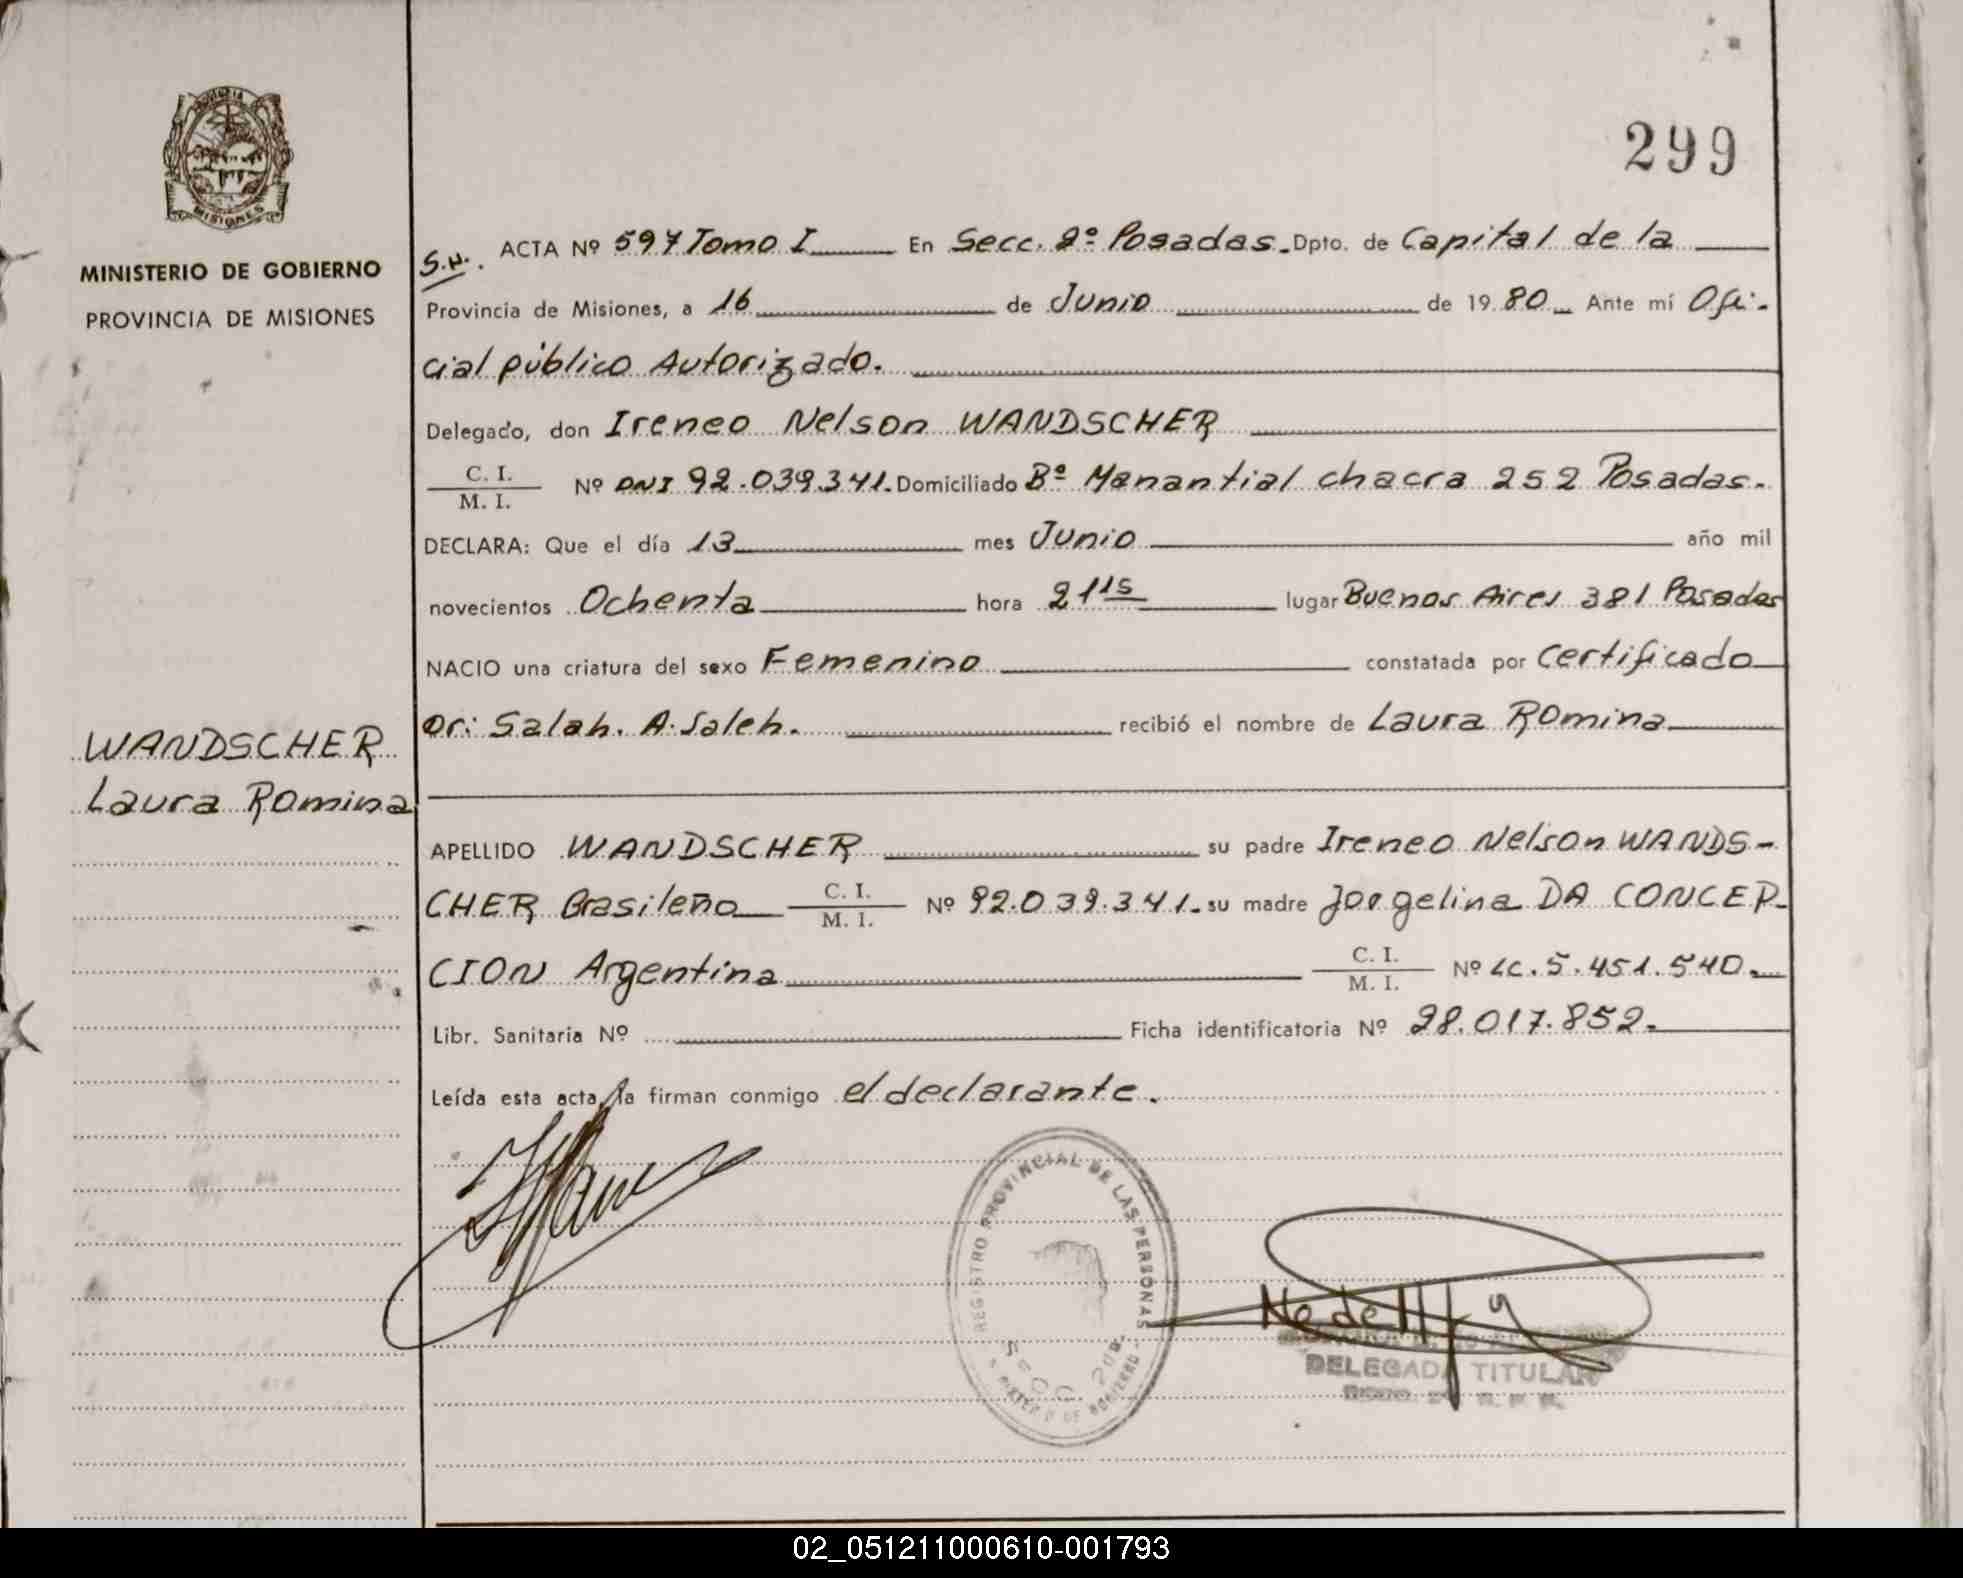 299
PROVINCIA
MISIONES
MINISTERIO DE GOBIERNO
PROVINCIA DE MISIONES
S.N. ACTA Nº 597 Tomo I En Secc. 2º Posadas. Dpto. de Capital de la
Provincia de Misiones, a 16 de Junio de 1980 Ante mí Ofi-
cial público Autorizado.
Delegado, don Ireneo Nelson WANDSCHER
C. I.
M. I. Nº DNI 92.039.341. Domiciliado Bº Manantial chacra 252 Posadas.
DECLARA: Que el día 13 mes Junio año mil
novecientos Ochenta hora 21 15 lugar Buenos Aires 381 Posadas
NACIO una criatura del sexo Femenino constatada por Certificado
Dr: Salah. A. Saleh. recibió el nombre de Laura Romina
WANDSCHER
Laura Romina
APELLIDO WANDSCHER su padre Ireneo Nelson WANDS-
CHER Brasileño C. I. M. I. Nº 92.039.341. su madre Jorgelina DA CONCEP-
CION Argentina C. I. M. I. Nº LC. 5.451.540.
Libr. Sanitaria Nº Ficha identificatoria Nº 28.017.852.
Leída esta acta, la firman conmigo el declarante.
REGISTRO PROVINCIAL DE LAS PERSONAS
DELEGADA TITULAR
02_051211000610-001793